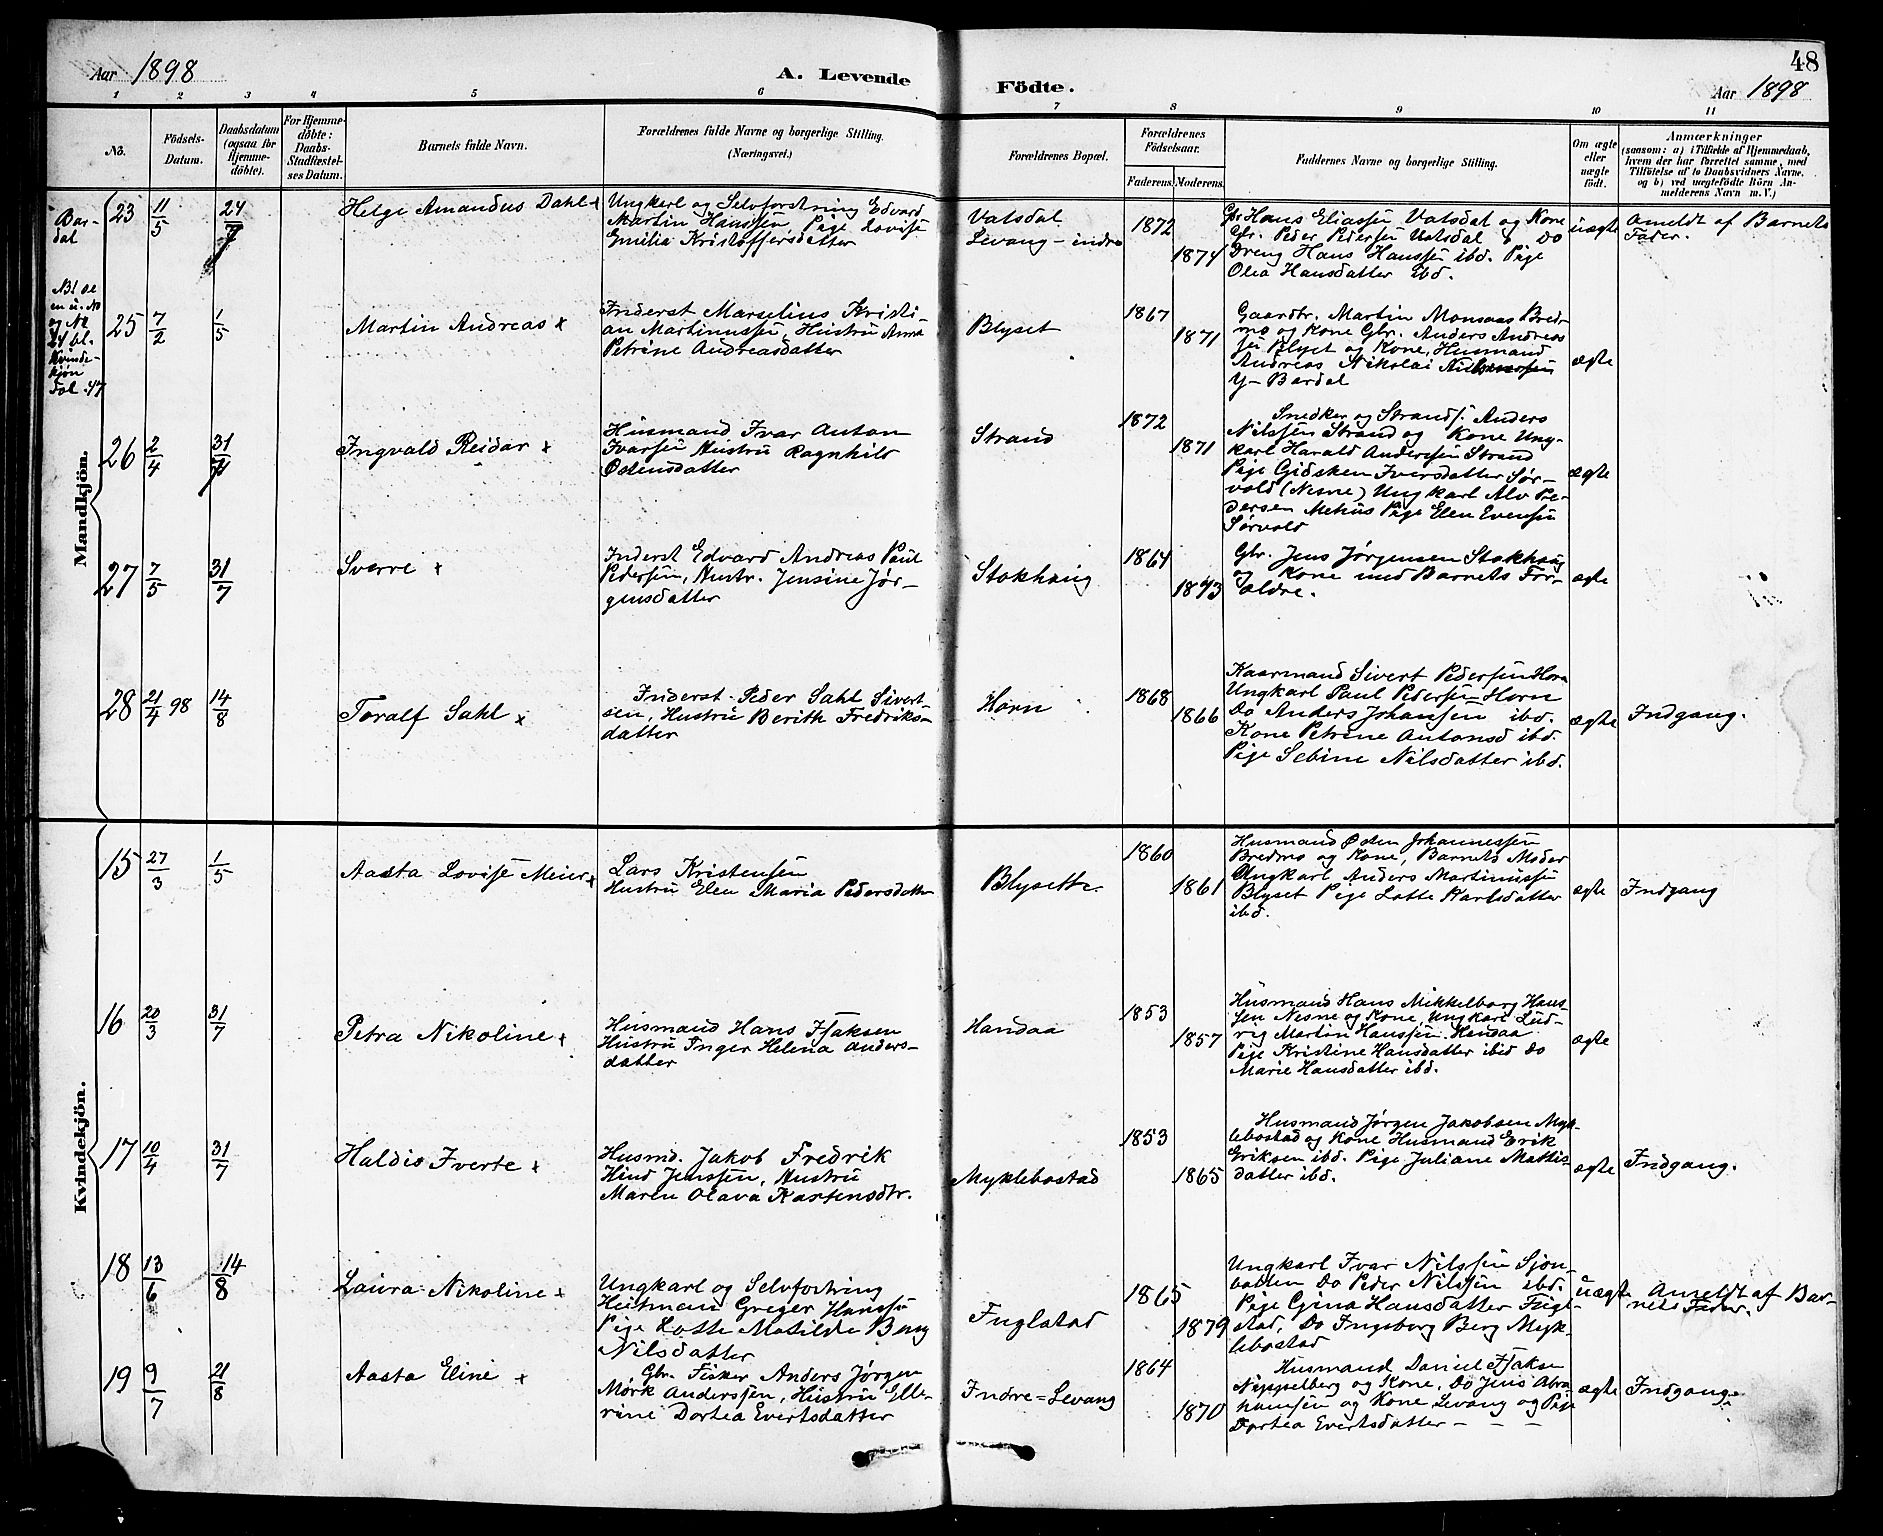 48
Aar 1898
A. Levende
Födte.
Aar 1898
1 2 3 4 5 6 7 8 9 10 11
No.
Födsels-
Datum.
Daabsdatum
(ogsaa for
Hjemme-
döbte).
For Hjemme-
döbte:
Daabs-
Stadfæstel-
ses Datum.
Barnets fulde Navn.
Forældrenes fulde Navne og borgerlige Stilling.
(Næringsvei.)
Forældrenes Bopæl.
Forældrenes
Födselsaar.
Faderens. Moderens.
Faddernes Navne og borgerlige Stilling.
Om ægte
eller
uægte
födt.
Anmærkninger
(saasom: a) i Tilfælde af Hjemmedaab,
hvem der har forrettet samme, med
Tilföielse af to Daabsvidners Navne,
og b) ved uægtefödte Börn An-
melderens Navn m. V.)
Bar-
dal
Mandkjön.
23
11/5
24/7
Helge Amandus Dahl
Ungkarl og Selvforstning Edvard
Martin Hanssen Pige Lovise
Emilia Kristoffersdatter
Vatsdal
Levang - indre
1872
1874
Gbr Hans Eliassen Vatsdal og Kone
Gbr. Peder Pedersen Vatsdal o Do
Dreng Hans Hanssen ibd. Pige
Olea Hansdatter ibd.
uægte
Anmeldt af Barnets
Fader.
25
7/2
1/5
Martin Andreas x
Inderst Marselius Kristi-
an Martinussen, Hustru Anna
Petrine Andreasdatter
Blyset
1867
1871
Gaardbr. Martin Monsaas Bred-
mo og Kone Gbr. Anders Andreas
sen Blyset og Kone, Husmand
Andreas Nikolai
Y- Bardal
ægte
26
2/4
31/7
Ingvald Reidar x
Husmand Ivar Anton
Ivarsen Hustru Ragnhild
Ostensdatter
Strand
1872
1871
Snedker og Strands. Anders
Nilssen Strand og Kone Ung-
karl Harald Anderssen Strand
Pige Gidsken Iversdatter Sør-
vold (Nesne) Ungkarl Alv Pe-
dersen Mehus Pige Elen Evensen
Sørvold
ægte
27
7/5
31/7
Sverre x
Inderst Edvard Andreas Paul
Pedersen, Hustr. Jensine Jør-
gensdatter
Stokhaug
1864
1873
Gbr. Jens Jørgensen Stokhaug
og Kone med Barnets For-
ældre.
ægte
28
21/4 98
14/8
Toralf Sahl x
Inderst Peder Sahl Sivert-
sen, Hustru Berith Fredriks-
datter
Horn
1868
1866
Kaarmand Sivert Pedersen Horn
Ungkarl Paul Pedersen Horn
Do Anders Johansen ibd.
Kone Petrine Antonsd ibd.
Pige Sebine Nilsdatter ibd.
ægte
Indgang.
Kvindekjön.
15
27/3
1/5
Aasta Lovise Meier x
Lars Kristensen
Hustru Elen Maria Pedersdatter
Blysette.
1860
1861
Husmand Østen Johannessen
Bredmo og Kone, Barnets Moder
Ungkarl Anders Martinussen
Blyset Pige Lotte Karlsdatter
ibd.
ægte
Indgang
16
20/3
31/7
Petra Nikoline x
Husmand Hans Isaksen
Hustru Inger Helena Anders-
datter
Handaa
1853
1857
Husmand Hans Mikkelborg Hans-
sen Nesne og Kone, Ungkarl Lud-
vig Martin Hanssen Handaa
Pige Kristine Hansdatter ibid Do
Marie Hansdatter ibd.
ægte
17
10/4
31/7
Haldis Iverte x
Husmd. Jakob Fredrik
Hind Jenssen, Hustru
Maren Olava Karstensdtr.
Myklebostad
1853
1865
Husmand Jørgen Jakobsen Myk-
lebostad og Kone Husmand Erik
Eriksen ibd. Pige Juliane Mathis-
datter ibd.
ægte
Indgang.
18
13/6
14/8
Laura Nikoline x
Ungkarl og Selvforstning
Hartman Greger Hanssen
Pige Lotte Matilde Berg
Nilsdatter
Inglstad
1865
1879
Ungkarl Ivar Nilssen Sjon-
botten Do Peder Nilssen ibd.
Pige Gina Hansdatter Ingl-
stad, Do Ingeborg Berg Myk-
lebostad
uægte
Anmeldt af Bar-
nets Fader.
19
9/7
21/8
Aasta Eline x
Gbr. Fisker Anders Jørgen
Mørk Anderssen, Hustru Elle-
rine Dortea Evertsdatter
Indre=Levang
1864
1870
Husmand Daniel Isaksen
Nippelberg og Kone. Do Jens Abra
hamsen og Kone Levang og Pige
Dortea Evertsdatter - - -
ægte
Indgang.